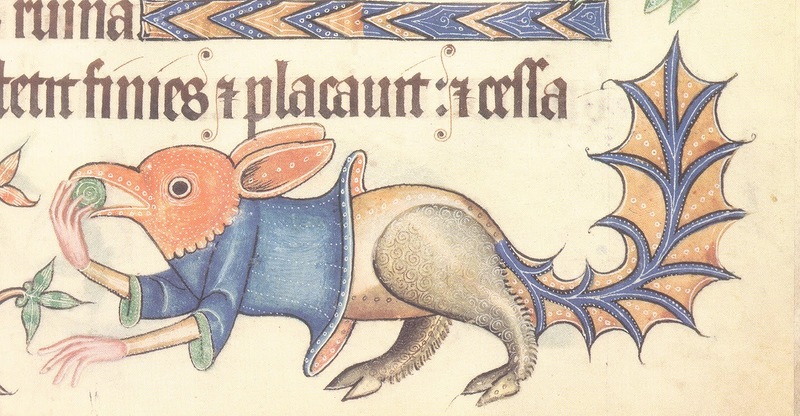 ruina
tetit finies ⁊ placauit :⁊ cessa